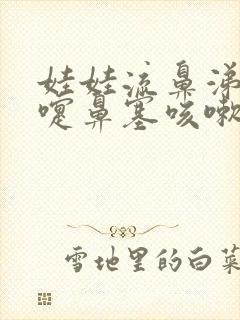 娃娃流鼻涕
嚏鼻塞咳嗽
雪地里的白菜